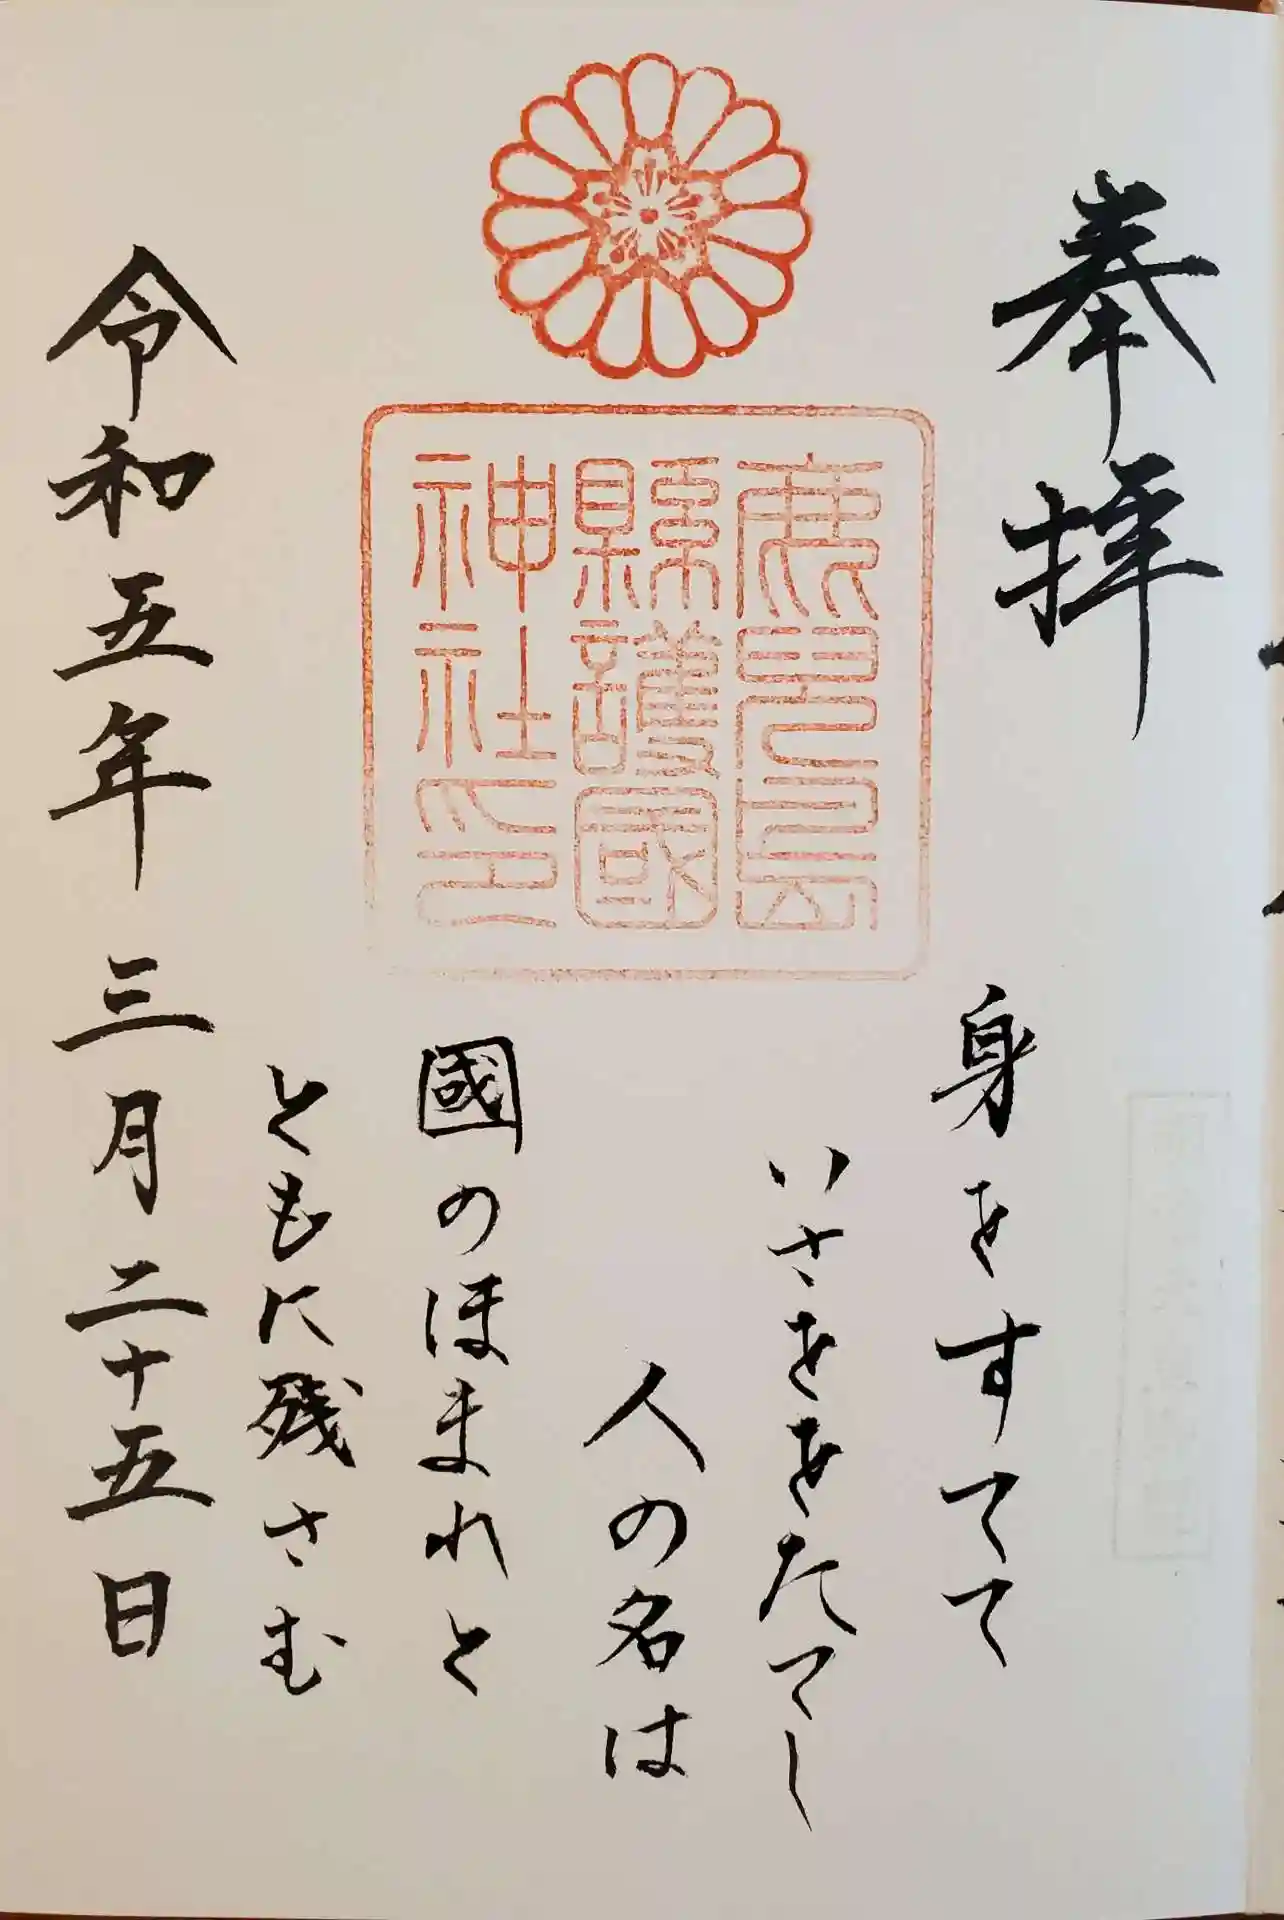 奉拝
鹿兒島
縣護國
神社印
身をすてて
いさををたてし
人の名は
國のほまれと
ともに残さむ
令和五年三月二十五日